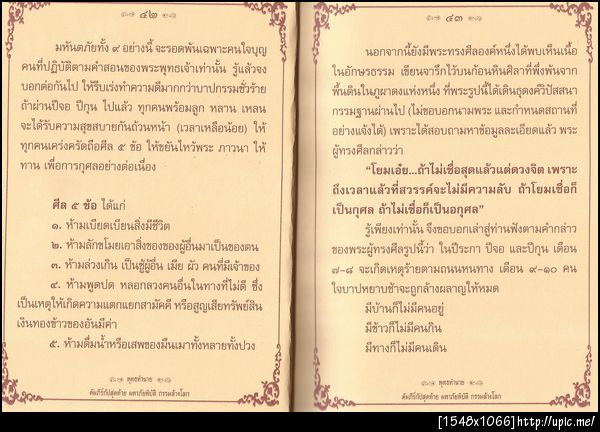 ๔๒
มหันตภัยทั้ง ๙ อย่างนี้ จะรอดพ้นเฉพาะคนใจบุญ
คนที่ปฏิบัติตามคำสอนของพระพุทธเจ้าเท่านั้น รู้แล้วจง
บอกต่อกันไป ให้รีบเร่งทำความดีมากกว่าบาปกรรมชั่วร้าย
ถ้าผ่านปีจอ ปีกุน ไปแล้ว ทุกคนพร้อมลูก หลาน เหลน
จะได้รับความสุขสบายกันถ้วนหน้า (เวลาเหลือน้อย) ให้
ทุกคนเคร่งครัดถือศีล ๕ ข้อ ให้ขยันไหว้พระ ภาวนา ให้
ทาน เพื่อการกุศลอย่างต่อเนื่อง
ศีล ๕ ข้อ ได้แก่
๑. ห้ามเบียดเบียนสิ่งมีชีวิต
๒. ห้ามลักขโมยเอาสิ่งของของผู้อื่นมาเป็นของตน
๓. ห้ามล่วงเกิน เป็นชู้ผู้อื่น เมีย ผัว คนที่มีเจ้าของ
๔. ห้ามพูดปด หลอกลวงคนอื่นในทางที่ไม่ดี ซึ่ง
เป็นเหตุให้เกิดความแตกแยกสามัคคี หรือสูญเสียทรัพย์สิน
เงินทองข้าวของอันมีค่า
๕. ห้ามดื่มน้ำหรือเสพของมึนเมาทั้งหลายทั้งปวง
พุทธทำนาย
คัมภีร์กัปสุดท้าย มหาภัยพิบัติ กรรมล้างโลก
๔๓
นอกจากนี้ยังมีพระทรงศีลองค์หนึ่งได้พบเห็นเนื้อ
ในอักษรธรรม เขียนจารึกไว้บนก้อนหินศิลาที่พึ่งพ้นจาก
พื้นดินในภูผาดงแห่งหนึ่ง ที่พระรูปนี้ได้เดินธุดงค์วิปัสสนา
กรรมฐานผ่านไป (ไม่ขอบอกนามพระ และกำหนดสถานที่
อย่างแจ้งได้) เพราะได้สอบถามหาข้อมูลละเอียดแล้ว พระ
ผู้ทรงศีลกล่าวว่า
“โยมเอ๋ย...ถ้าไม่เชื่อสุดแล้วแต่ดวงจิต เพราะ
ถึงเวลาแล้วที่สวรรค์จะไม่มีความลับ ถ้าโยมเชื่อก็
เป็นกุศล ถ้าไม่เชื่อก็เป็นอกุศล”
รู้เพียงเท่านั้น จึงขอบอกเล่าสู่ท่านฟังตามคำกล่าว
ของพระผู้ทรงศีลรูปนี้ว่า ในปีระกา ปีจอ และปีกุน เดือน
๗-๘ จะเกิดเหตุร้ายตามถนนหนทาง เดือน ๙-๑๐ คน
ใจบาปหยาบช้าจะถูกล้างผลาญให้หมด
มีบ้านก็ไม่มีคนอยู่
มีข้าวก็ไม่มีคนกิน
มีทางก็ไม่มีคนเดิน
พุทธทำนาย
คัมภีร์กัปสุดท้าย มหาภัยพิบัติ กรรมล้างโลก
[1548x1066]http://upic.me/